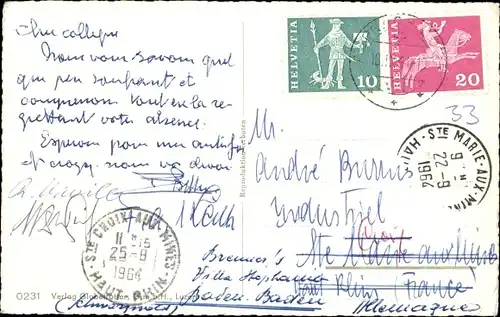 Cher collègue
Nous vous savons quel
que peu souffrant et
comprenons tout en la re-
grettant votre absence.
Espérons pour une
et croyez nous vos
HELVETIA 10
HELVETIA 20
33
STE MARIE-AUX-MINES
9 H
22-9
1964
HAUT
Mr.
André Burrus
Industriel
Ste Marie aux Mines
Haut Rhin (France)
Brenner's
Villa Stephanie
Baden-Baden
Allemagne
STE CROIX-AUX-MINES
11 H 15
25-9
1964
HAUT-RHIN
0231 Verlag Globetrotter G.m.b.H., Luzern
Reproduktion verboten